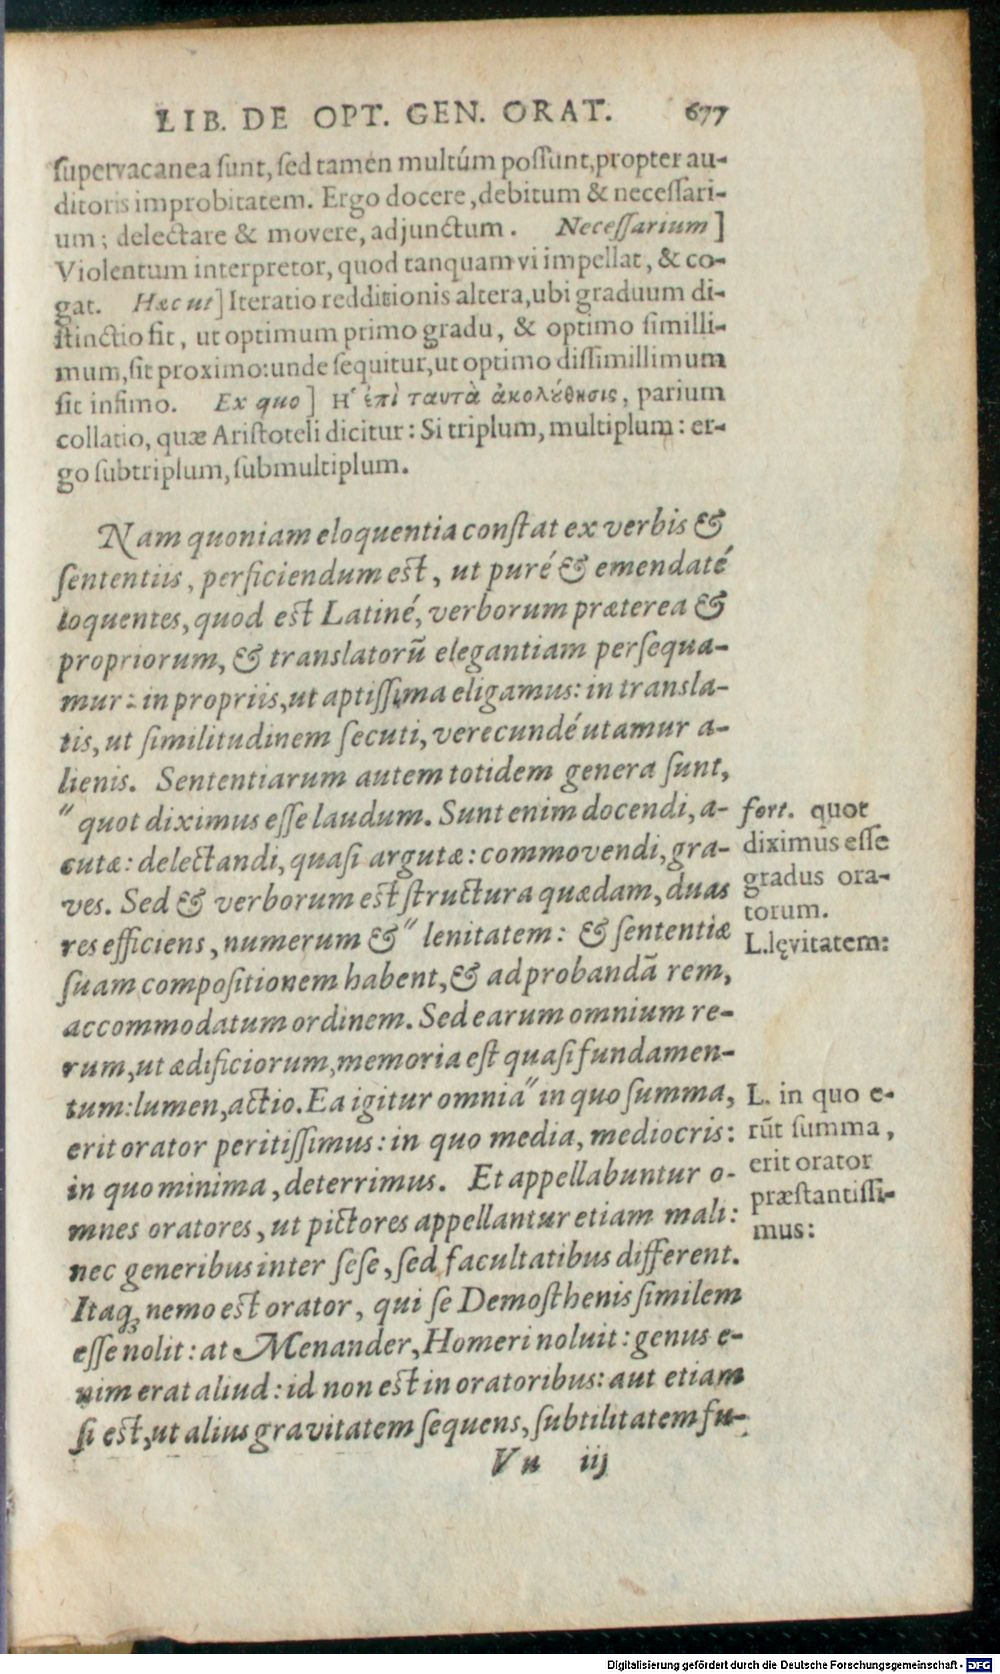 LIB. DE OPT. GEN. ORAT. 677
supervacanea sunt, sed tamen multúm possunt, propter au-
ditoris improbitatem. Ergo docere, debitum & necessari-
um; delectare & movere, adjunctum. Necessarium]
Violentum interpretor, quod tanquam vi impellat, & co-
gat. Hæc ut] Iteratio redditionis altera, ubi graduum di-
stinctio fit, ut optimum primo gradu, & optimo simillimum-
mum, sit proximo: unde sequitur, ut optimo dissimillimum
sit infimo. Ex quo] Ἡ ἐπὶ ταυτὰ ἀκολούθησις, parium
collatio, quæ Aristoteli dicitur: Si triplum, multiplum: er-
go subtriplum, submultiplum.
Nam quoniam eloquentia constat ex verbis &
sententiis, perficiendum est, ut puré & emendaté
loquentes, quod est Latiné, verborum præterea &
propriorum, & translatorũ elegantiam persequa-
mur: in propriis, ut aptissima eligamus: in transla-
tis, ut similitudinem secuti, verecundé utamur a-
lienis. Sententiarum autem totidem genera sunt,
" quot diximus esse laudum. Sunt enim docendi, a-
cutæ: delectandi, quasi argutæ: commovendi, gra-
ves. Sed & verborum est structura quædam, duas
res efficiens, numerum & " lenitatem: & sententiæ
suam compositionem habent, & ad probandã rem,
accommodatum ordinem. Sed earum omnium re-
rum, ut ædificiorum, memoria est quasi fundamen-
tum: lumen, actio. Ea igitur omnia " in quo summa,
erit orator peritissimus: in quo media, mediocris:
in quo minima, deterrimus. Et appellabuntur o-
mnes oratores, ut pictores appellantur etiam mali:
nec generibus inter sese, sed facultatibus different.
Itaq; nemo est orator, qui se Demosthenis similem
esse nolit: at Menander, Homeri noluit: genus e-
nim erat aliud: id non est in oratoribus: aut etiam
si est, ut alius gravitatem sequens, subtilitatem fu-
Vu iij
fort. quot
diximus esse
gradus ora-
torum.
L. lęvitatem:
L. in quo e-
rũt summa,
erit orator
præstantissi-
mus:
Digitalisierung gefördert durch die Deutsche Forschungsgemeinschaft - DFG